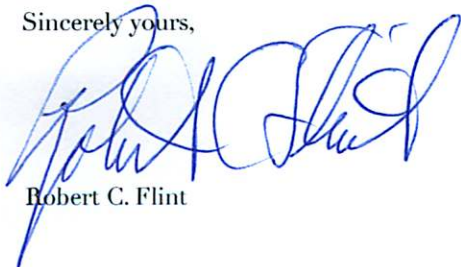 Sincerely yours,
Robert C. Flint
Robert C. Flint